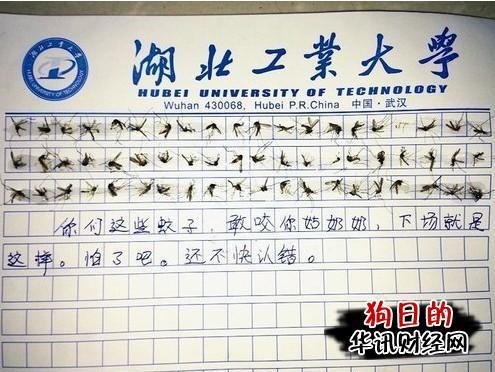 湖北工業大學
HUBEI UNIVERSITY OF TECHNOLOGY
HUBEI UNIVERSITY OF TECHNOLOGY
Wuhan 430068, Hubei P.R.China 中国·武汉
你们这些蚊子，敢咬你姑奶奶，下场就是
这样。怕了吧。还不快认错。
狗日的
华讯财经网